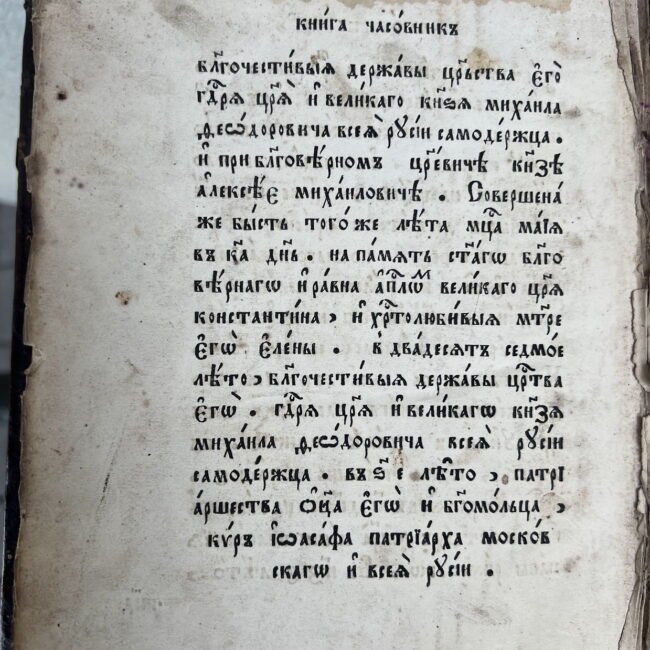 кни́га часо́вникъ
бл҃гочести́выѧ держа́вы црⷭ҇тва є҆го̀
гдⷭ҇рѧ цр҃ѧ̀ и҆ вели́каго кн҃ѕѧ миха́ила
ѳео́дѡровича всеѧ̀ рꙋсі́и самоде́ржца .
и҆ при бл҃гове́рномъ цр҃е́виче кн҃ѕѣ
а҆леѯѣ́є миха́иловичѣ . Соверше́на
же бы́сть того́же лѣ́та мцⷭ҇а ма́їѧ
въ к҃а дн҃ь . на па́мѧть ст҃а́гѡ бл҃го
вѣ́рнагѡ и҆ ра́вна а҆пⷭ҇лѡⷨ вели́каго цр҃ѧ̀
константи́на , и҆ хрⷭ҇толюби́выѧ мт҃ре
є҆гѡ̀ є҆ле́ны . в два́десѧтъ седмо́е
лѣ́то , бл҃гочести́выѧ держа́вы црⷭ҇тва
є҆гѡ̀ . гдⷭ҇рѧ цр҃ѧ̀ и҆ вели́кагѡ кн҃ѕѧ
миха́ила ѳео́дѡровича всеѧ̀ рꙋсі́и
самоде́ржца . въ ѕ҃ е лѣ́то , патрї
а́ршества ѻ҆ц҃а̀ є҆гѡ̀ и҆ бг҃омо́льца ,
кѵ́ръ і҆ѡаса́фа патрїа́рха моско́в
скагѡ и҆ всеѧ̀ рꙋсі́и .